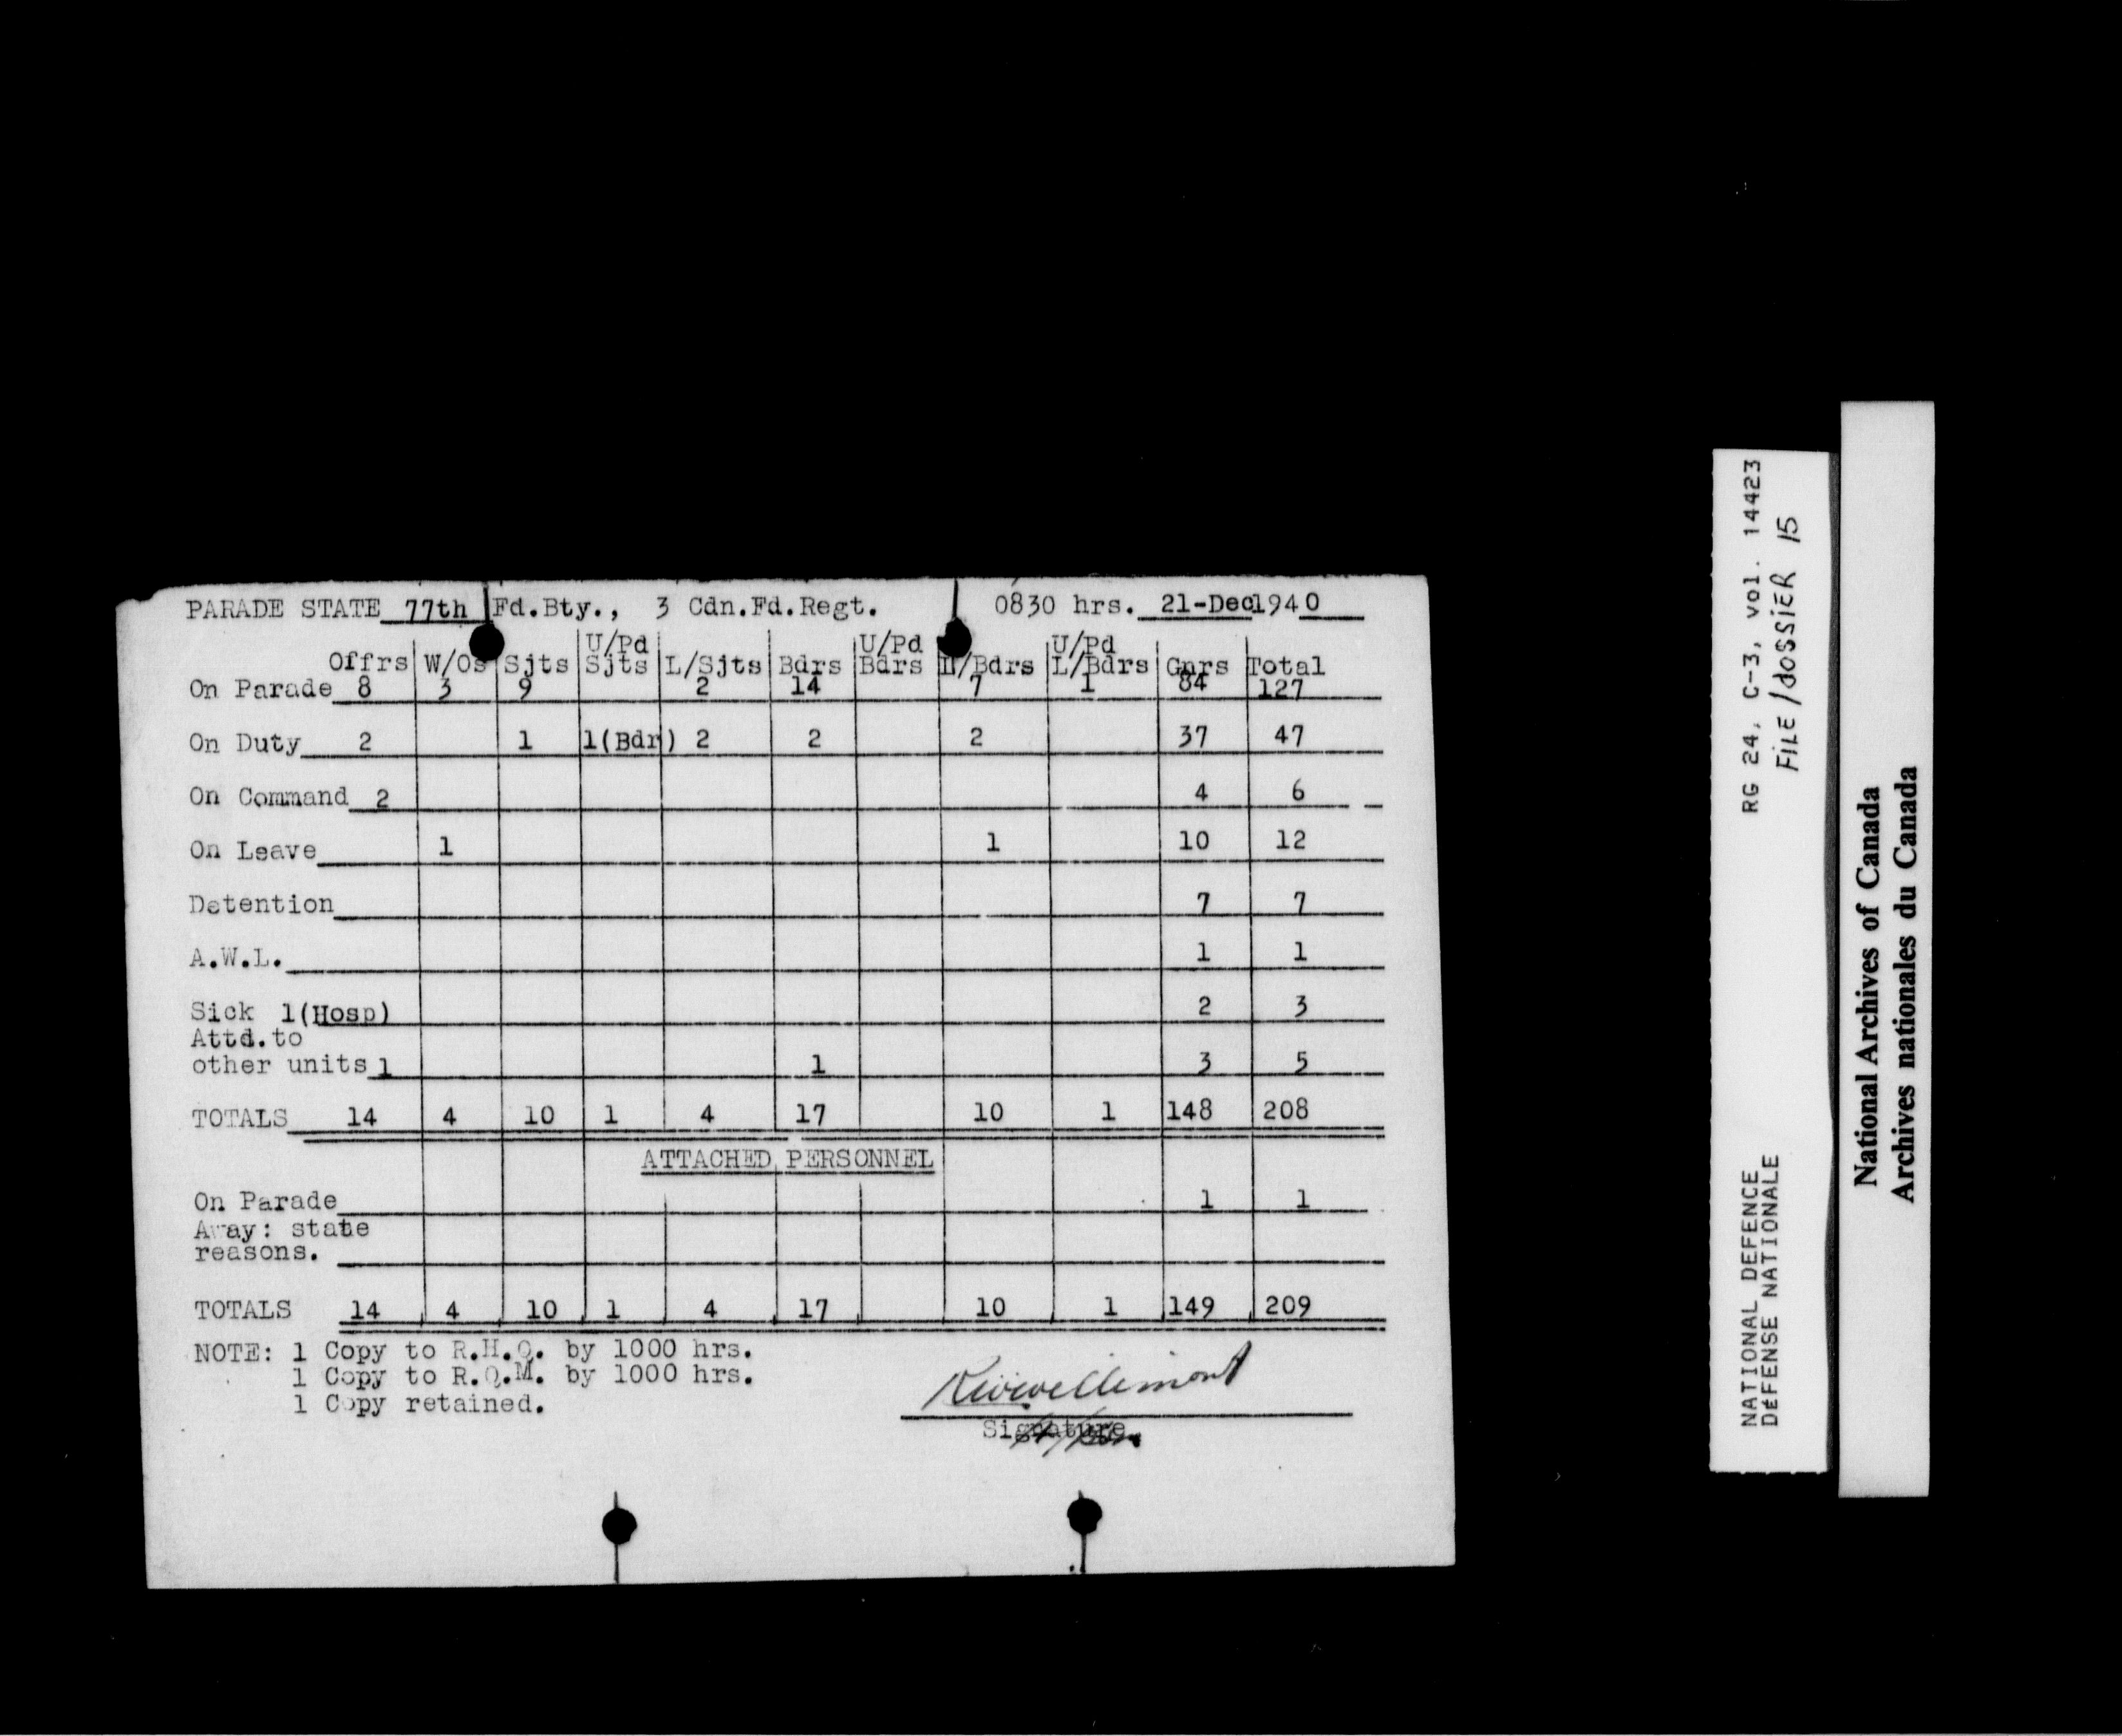 PARADE STATE 77th Fd.Bty., 3 Cdn.Fd.Regt. 0830 hrs. 21-Dec1940
Offrs W/Os Sjts U/Pd Sjts L/Sjts Bdrs U/Pd Bdrs L/Bdrs U/Pd L/Bdrs Gnrs Total
On Parade 8 3 9 2 14 7 1 84 127
On Duty 2 1 1(Bdr) 2 2 2 37 47
On Command 2 4 6
On Leave 1 1 10 12
Detention 7 7
A.W.L. 1 1
Sick 1(Hosp) 2 3
Attd.to
other units 1 1 3 5
TOTALS 14 4 10 1 4 17 10 1 148 208
ATTACHED PERSONNEL
On Parade 1 1
Away: state
reasons.
TOTALS 14 4 10 1 4 17 10 1 149 209
NOTE: 1 Copy to R.H.Q. by 1000 hrs.
1 Copy to R.Q.M. by 1000 hrs.
1 Copy retained.
Signature
RG 24, C-3, vol. 14423
FILE/dOSSiER 15
NATIONAL DEFENCE
DéFENSE NATIONALE
National Archives of Canada
Archives nationales du Canada